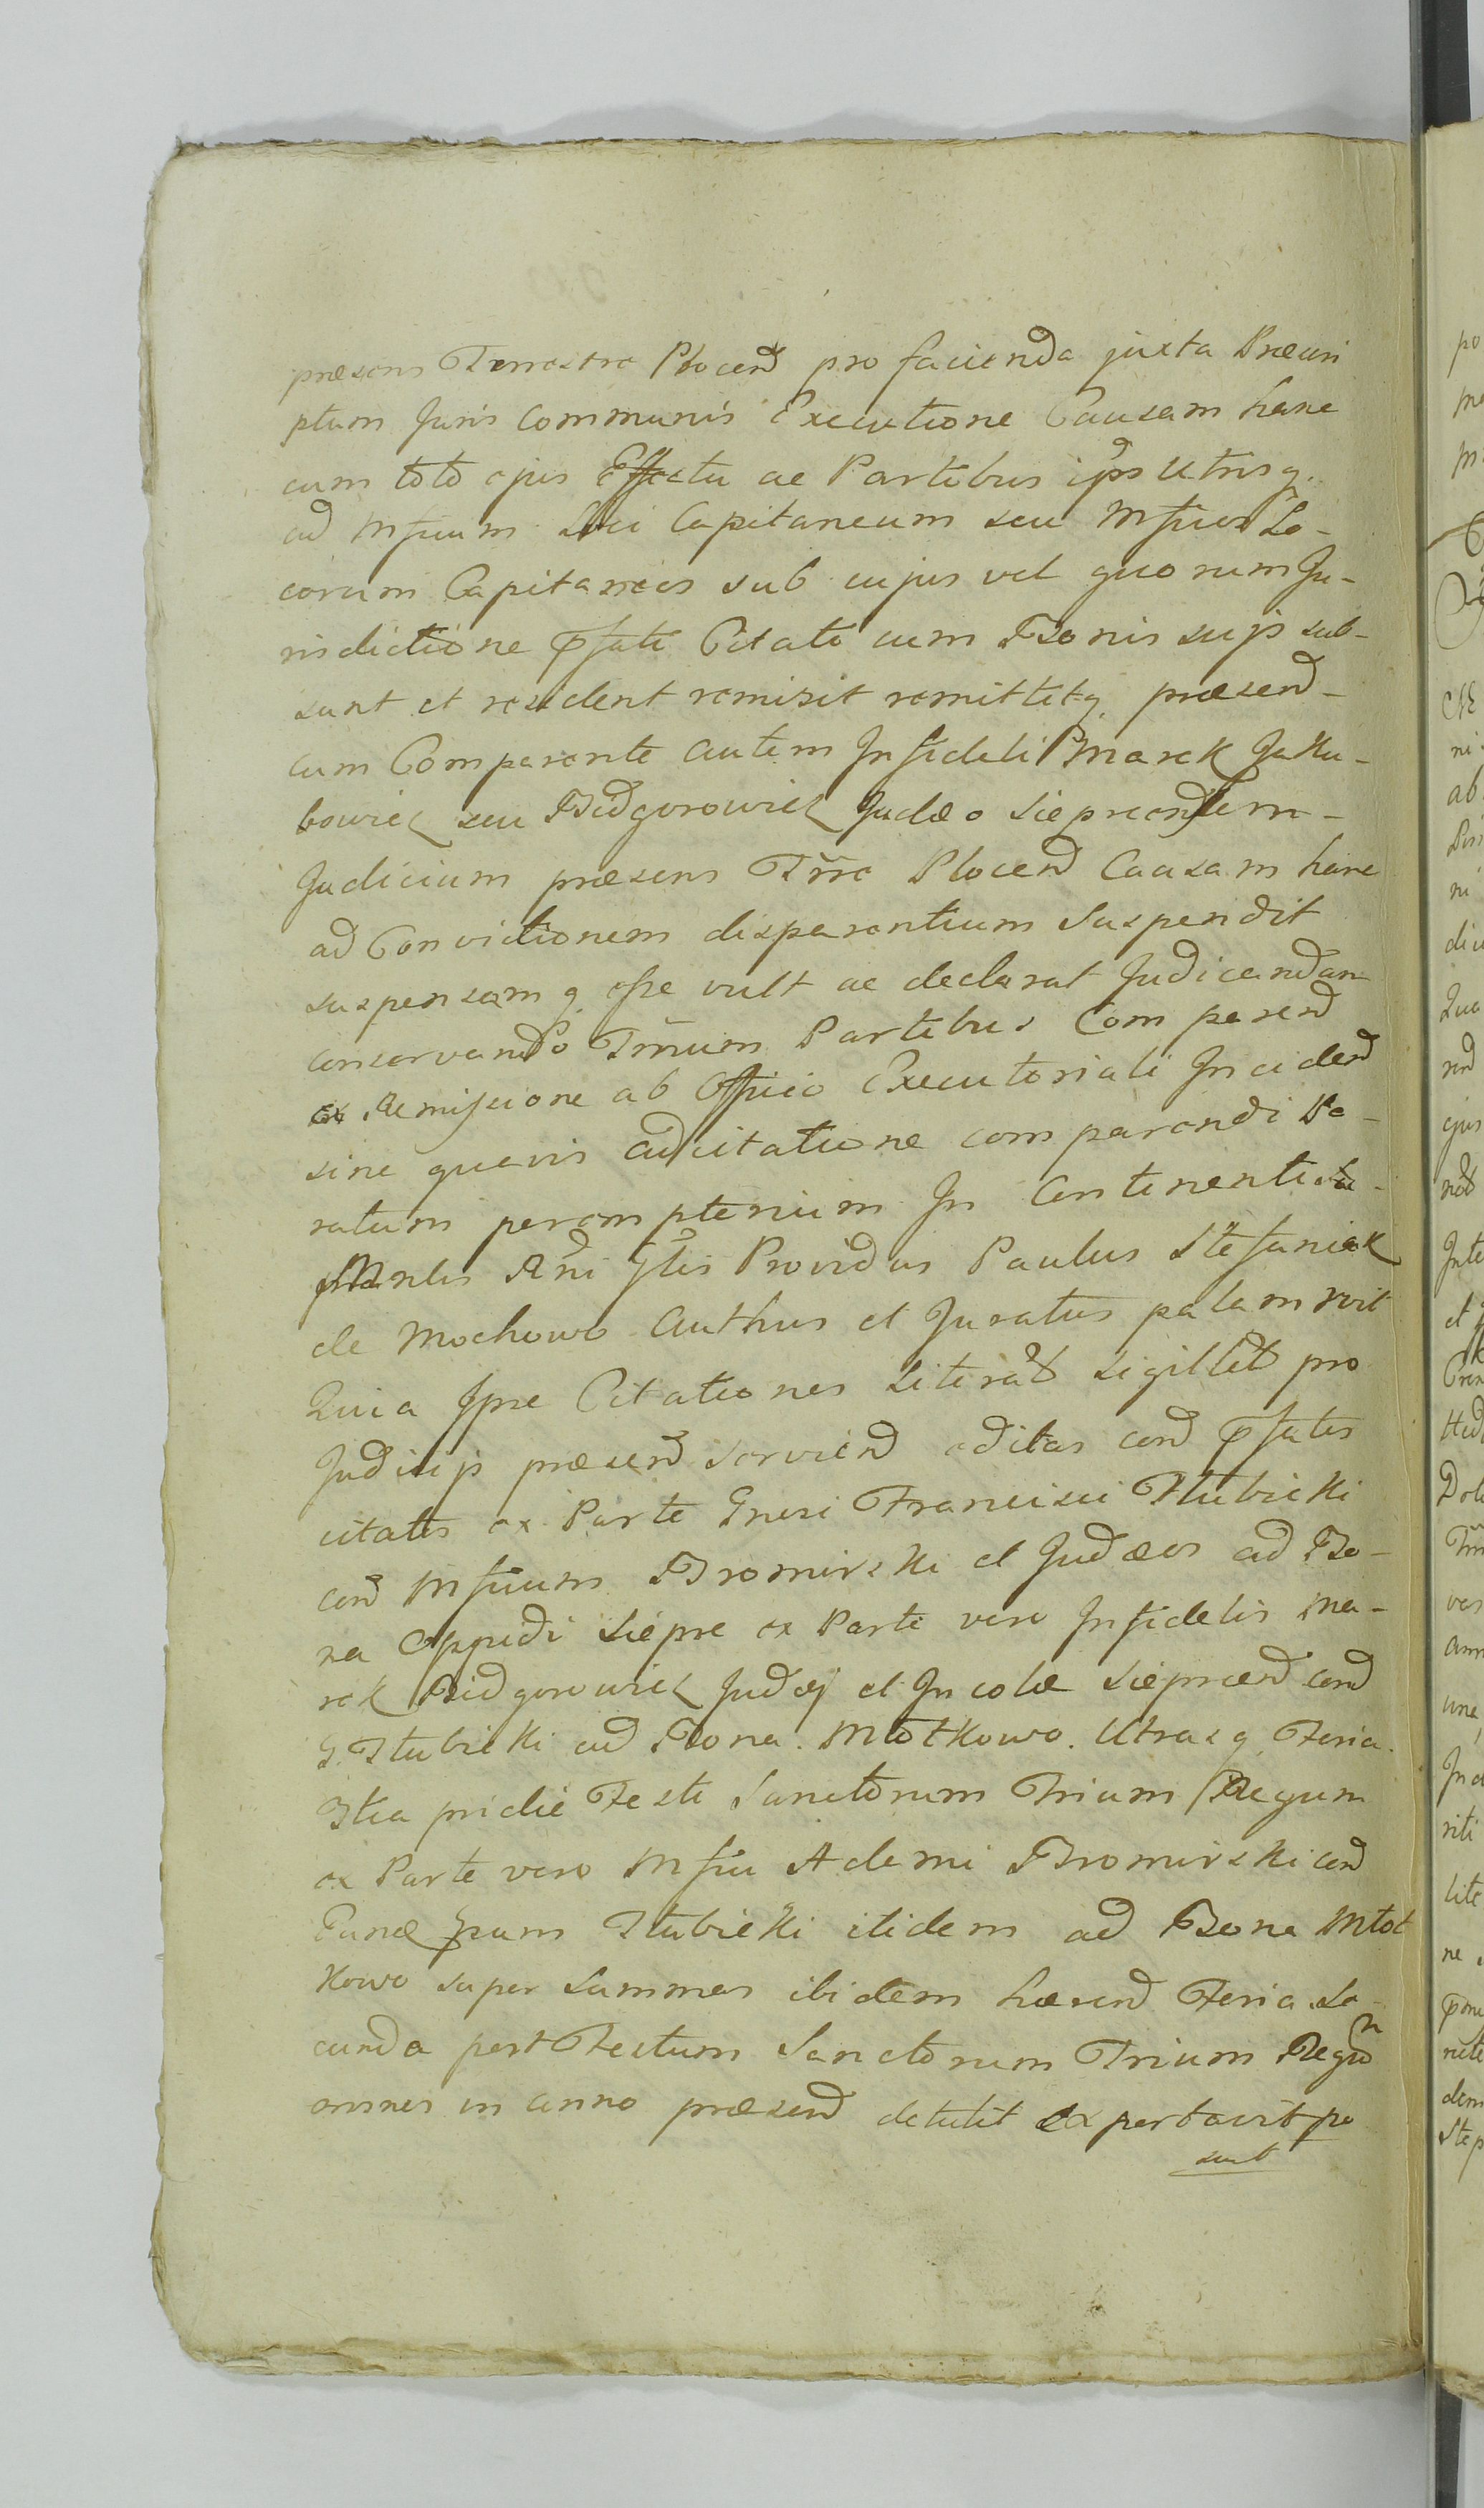 præsens Terrestre Plocen pro facienda juxta Præscri
ptum Juris Communis Executione Causam hanc
cum toto ejus Effectu ac Partibus ips Utrisq.
ad Mfcum Loci Capitaneum seu Mfcos Lo-
corum Capitaneos sub cujus vel quorum Ju-
risdictione pfati Citati cum Bonis suis sub-
sunt et resident remisit remittetq. præsen-
cum Comparente autem Infideli Marek Jaku-
bowicz seu Bidgorowicz Judæo Sieprcensem-
Judicium præsens Trre Plocen Causam hanc
ad Convictionem disparentium Suspendit
suspensamq esse vult ac declarat Judicandam
conservando Trmum Partibus Comparen
ex Remissione ab Officio Executoriali Inciden
sine quavis adcitatione comparendi Pa-
ratum peremptorium In Continenti
Rni Gtis Providus Paulus Stefaniak
de Mochowo Authus et Juratus palam rvit
Quia Ipse Citationes Literat Sigillat pro
Judicijs præsen Servien editas con pfatos
citatos ex Parte Gnesi Francisci Hubicki
con Mfcum Bromirski et Judæos ad Bo-
na Oppidi Siepre ex Parte vero Infidelis Ma-
rek Bidgorowicz Judæj et Incolæ Siepræn con
G. Hubicki ad Bona. Młotkowo. Utrasq Feria.
3tia pridie Festi Sanctorum Trium Regum
ex Parte vero Mfci Adami Bromirski con
Eund psum Hubicki itidem ad Bona Młot
kowo super Summas ibidem hæren Feria Se-
cunda post Festum Sanctorum Trium Regum
omnes in anno præsen detulit et portavit po
suit